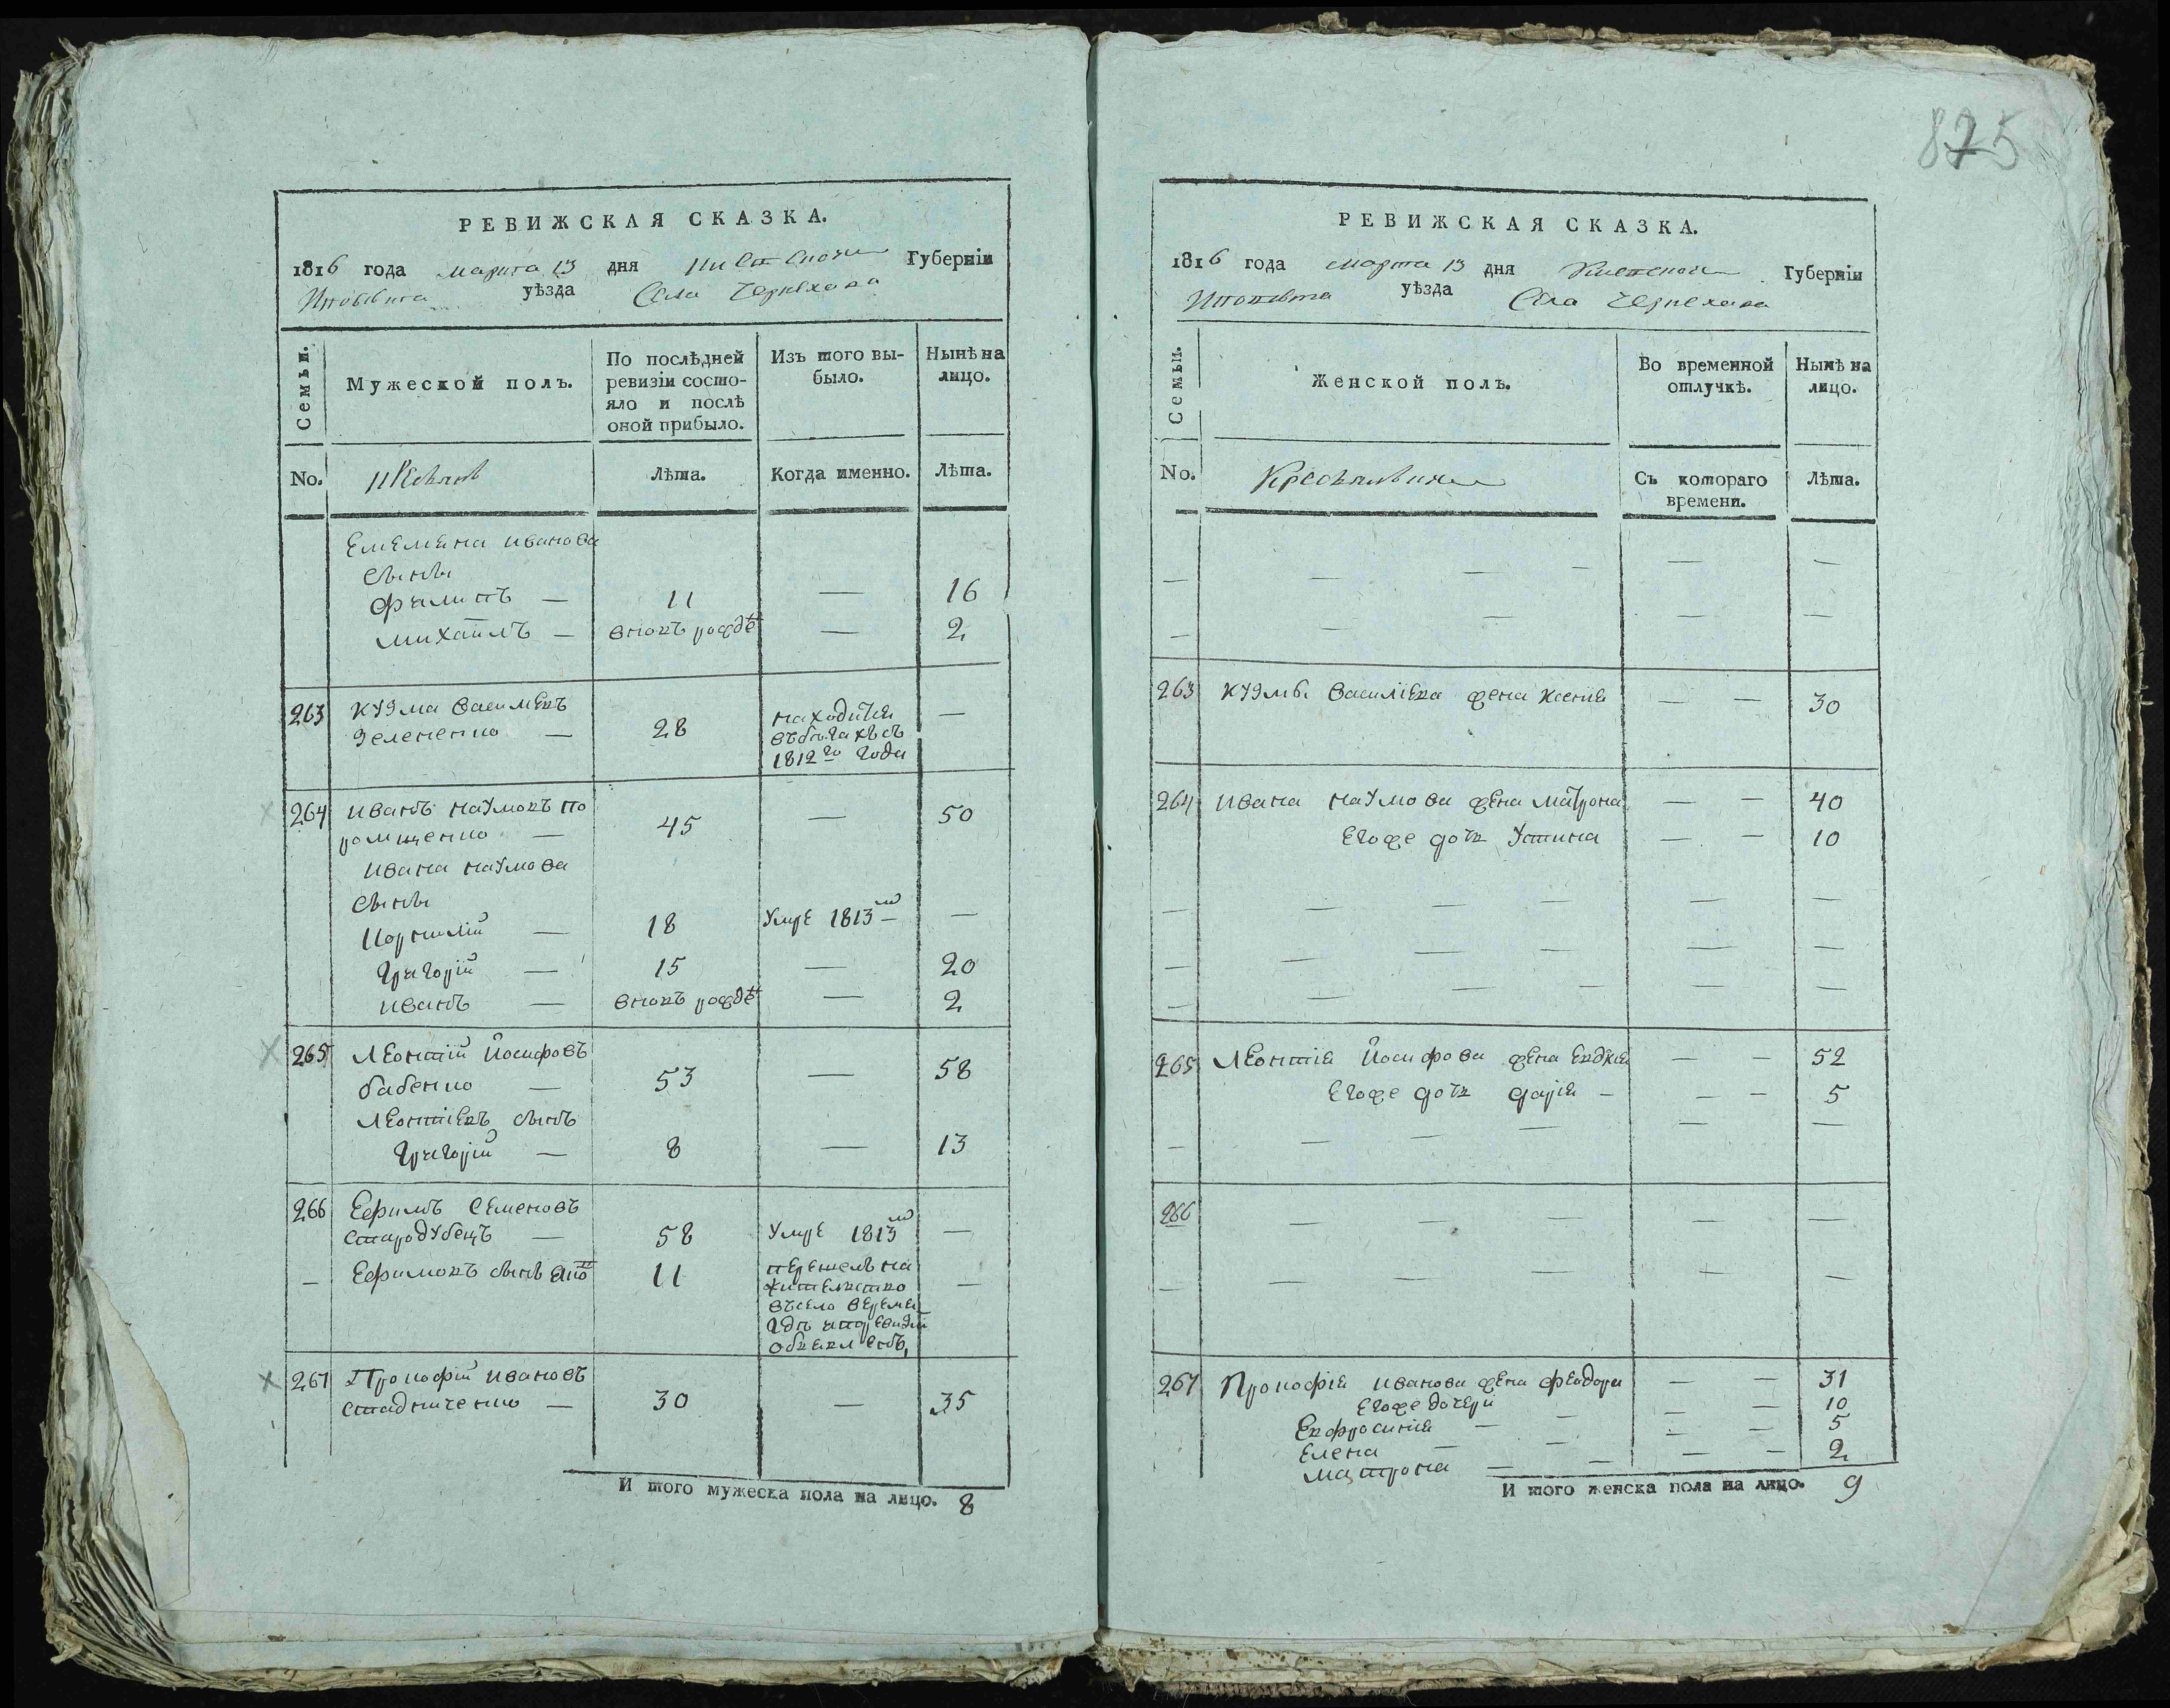 825
РЕВИЖСКАЯ СКАЗКА.
1816 года марта 13 дня Губерніи
уѣзда Села Чернехова
Семьи.
Мужеской полъ.
По послѣдней
ревизіи состо-
яло и послѣ
оной прибыло.
Изъ того вы-
было.
Нынѣ на
лицо.
No.
Лѣта.
Когда именно.
Лѣта.
Емемѣна иванова
сынъ
филипъ — 11 — 16
михаилъ — вновъ рождѣ — 2
263 кузма василевъ
зелененко — 28 находится
въ бѣгахъ съ
1812го года —
264 иванъ наумовъ по
ромщенко — 45 — 50
ивана наумова
сынъ
Корнилій — 18 Умре 1813го —
григорій — 15 — 20
иванъ — вновъ рождѣ — 2
265 Леонтій Йосифовъ
бабенко — 53 — 58
Леонтіевъ сынъ
григорій — 8 — 13
266 Ефимъ Семеновъ
стародубецъ — 58 Умре 1813го —
— Ефимовъ сынъ 11 перешелъ на
жителство
въ село веремѣ
гдѣ ипоревизіи
обявленъ, —
267 Прокофій ивановъ
стадниченко — 30 — 35
И того мужеска пола на лицо. 8
РЕВИЖСКАЯ СКАЗКА.
1816 года марта 13 дня Киевской Губерніи
уѣзда Села Чернехова
Семьи.
Женской полъ.
Во временной
отлучкѣ.
Нынѣ на
лицо.
No.
Съ котораго
времени.
Лѣта.
— — — — — —
— — — — — —
263 кузмы василіева жена ксенія — — 30
264 ивана наумова жена матрона — — 40
Егоже дочъ Устина — — 10
— — — — — —
— — — — — —
— — — — — —
265 Леонтія Йосифова жена Евдкія — — 52
Егоже дочъ дарія — — — 5
— — — — — —
266 — — — — —
— — — — — —
267 Прокофія иванова жена феодора — — 31
Егоже дочери — — 10
Евфросинія — — — — 5
Елена — — — — 2
матрона — —
И того женска пола на лицо. 9